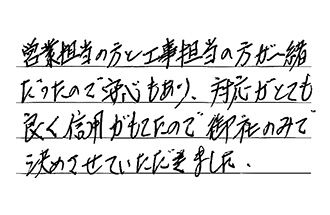 営業担当の方と工事担当の方が一緒
だったので安心もあり、対応がとても
良く信用がもてたので御社のみで
決めさせていただきました.